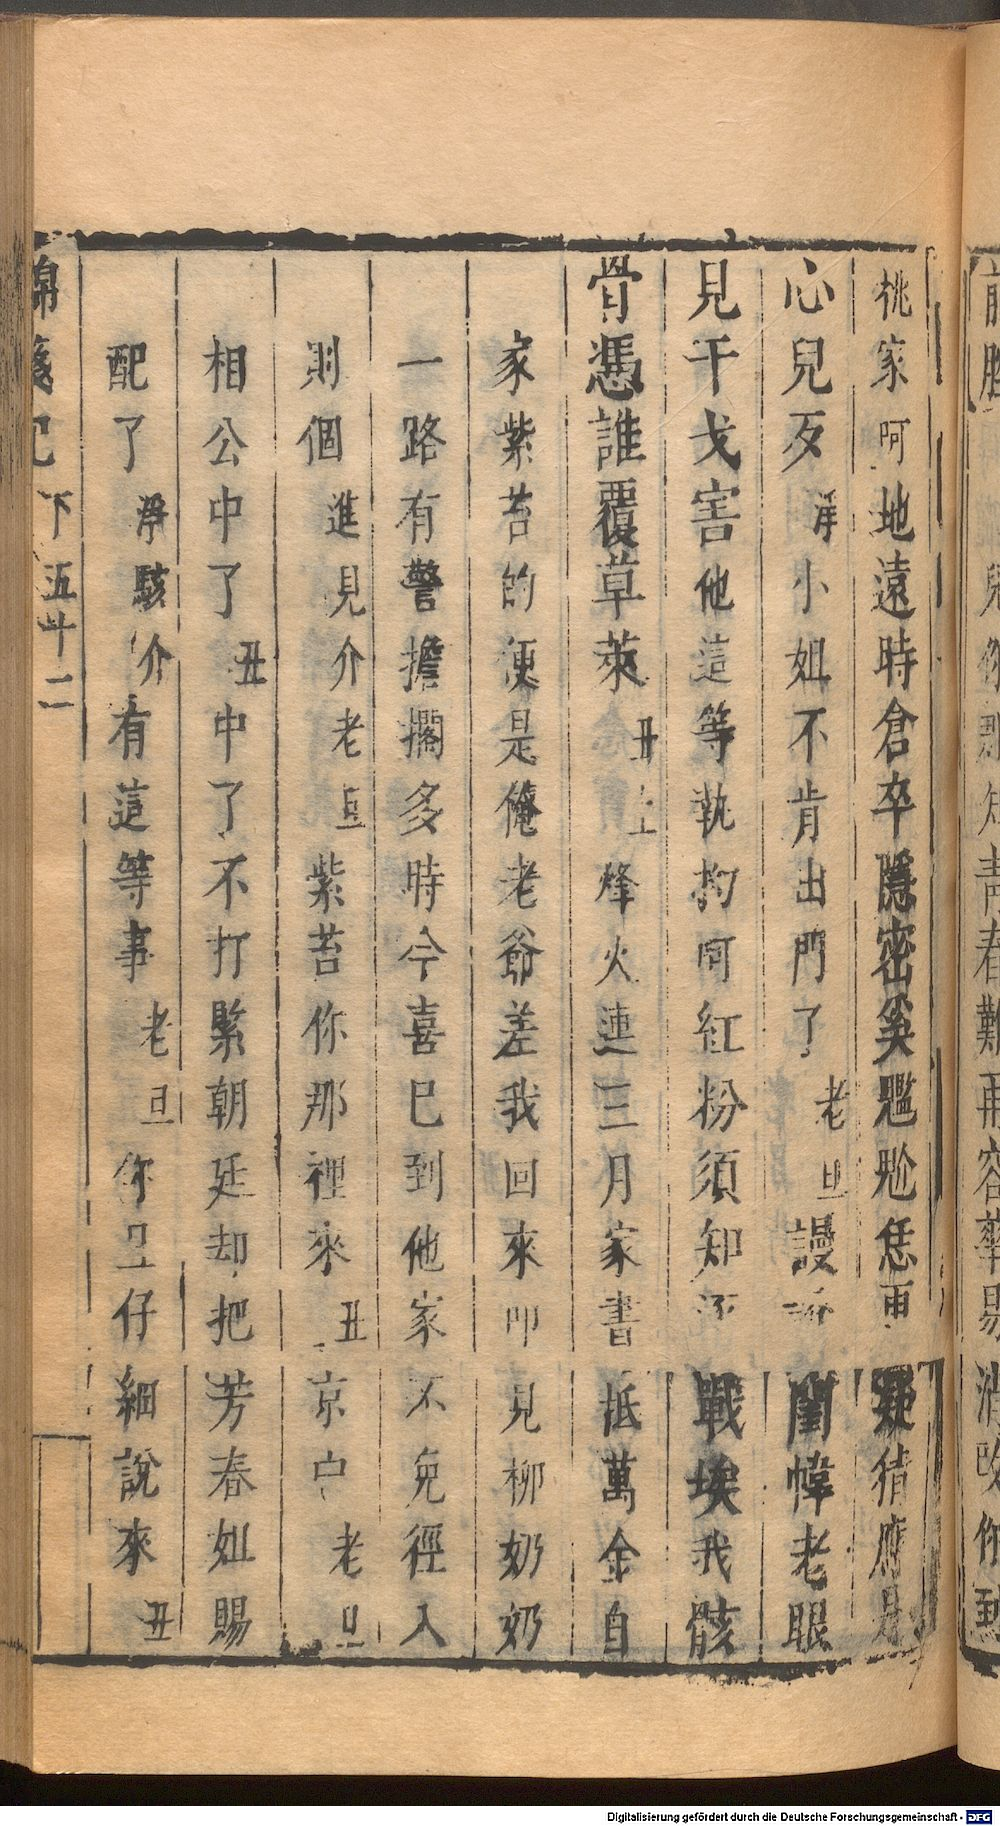 桃家呵地遠時倉卒隱密奚尷尬恁再疑猜應是
心兒歹淨小姐不肯出門了老旦謾 閨幃老眼
見干戈害他這等執拘呵紅粉須知 戰埃我骸
骨憑誰覆草萊丑上烽火連三月家書抵萬金自
家紫苔的便是俺老爺差我回來 見柳奶奶
一路有警擔擱多時今喜已到他家不免徑入
則個進見介老旦紫苔你那裡來丑京中老旦
相公中了丑中了中了不打緊朝廷却把芳春姐賜
配了淨駭介有這等事老旦你且仔細說來丑
錦箋記 下 五十二
兒你 青春難再容華易消
Digitalisierung gefördert durch die Deutsche Forschungsgemeinschaft - DFG